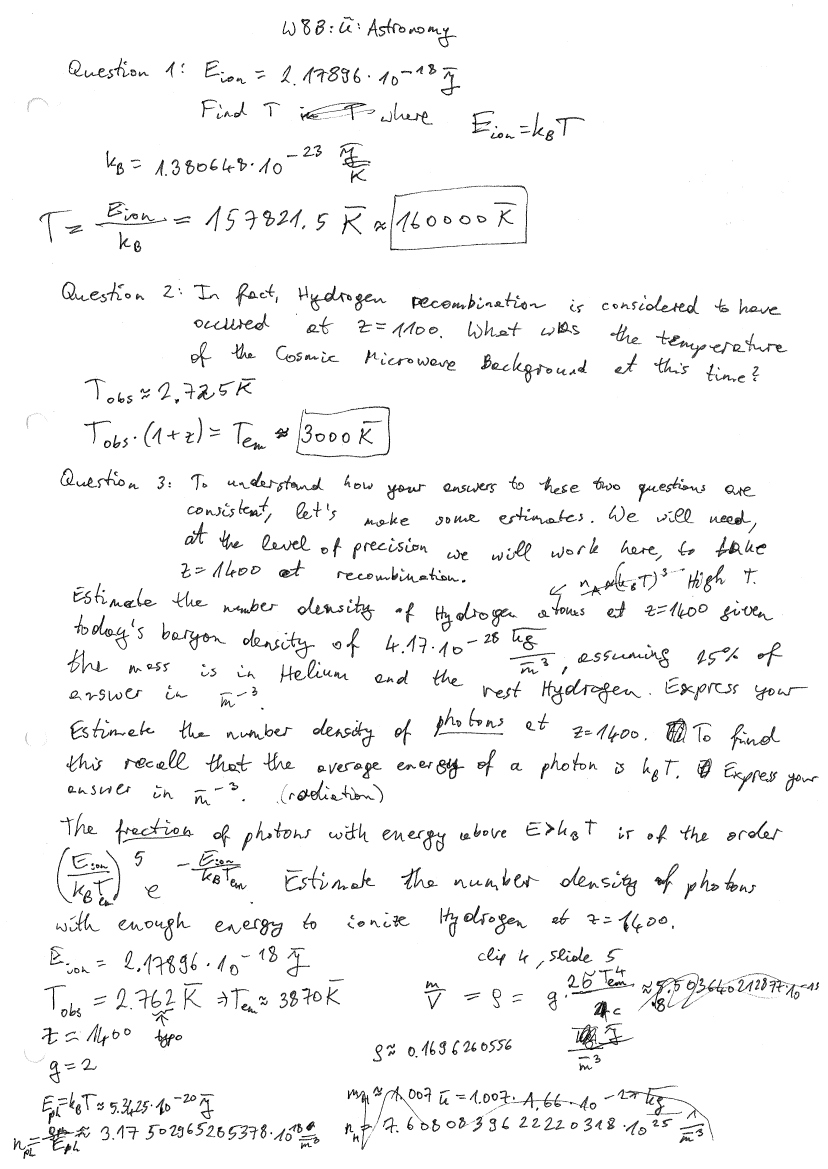 W8B: ū: Astronomy
Question 1: E_ion = 2.17896·10^-18 J̄
Find T where E_ion = k_B T
k_B = 1.380648·10^-23 J̄/K̄
T = E_ion/k_B = 157821.5 K̄ ≈ 160000 K̄
Question 2: In fact, Hydrogen recombination is considered to have
occured at z=1100. What was the temperature
of the Cosmic Microwave Background at this time?
T_obs ≈ 2.725 K̄
T_obs·(1+z) = T_em ≈ 3000 K̄
Question 3: To understand how your answers to these two questions are
consistent, let's make some estimates. We will need,
at the level of precision we will work here, to take
z=1400 at recombination.
(k_B T)^3 High T.
Estimate the number density of Hydrogen atoms at z=1400 given
today's baryon density of 4.17·10^-28 k̄g/m̄^3, assuming 25% of
the mass is in Helium and the rest Hydrogen. Express your
answer in m̄^-3.
Estimate the number density of photons at z=1400. To find
this recall that the average energy of a photon is k_B T. Express your
answer in m̄^-3. (radiation)
The fraction of photons with energy above E>k_B T is of the order
(E_ion/k_B T_em)^5 e^(-E_ion/k_B T_em). Estimate the number density of photons
with enough energy to ionize Hydrogen at z=1400.
E_ion = 2.17896·10^-18 J̄
clip 4, slide 5
T_obs = 2.762 K̄ ⇒ T_em ≈ 3870 K̄
m/V = ρ = g·2σ̄T_em^4/c
z = 1400 typo
ρ ≈ 0.1696260556 J̄/m̄^3
g = 2
E_ph = k_B T ≈ 5.3425·10^-20 J̄
m_H ≈ 1.007 ū = 1.007·1.66·10^-27 k̄g
n_ph = ρ/E_ph ≈ 3.17502965265378·10^18 1/m̄^3
n_H = 7.6080839622220318·10^25 1/m̄^3